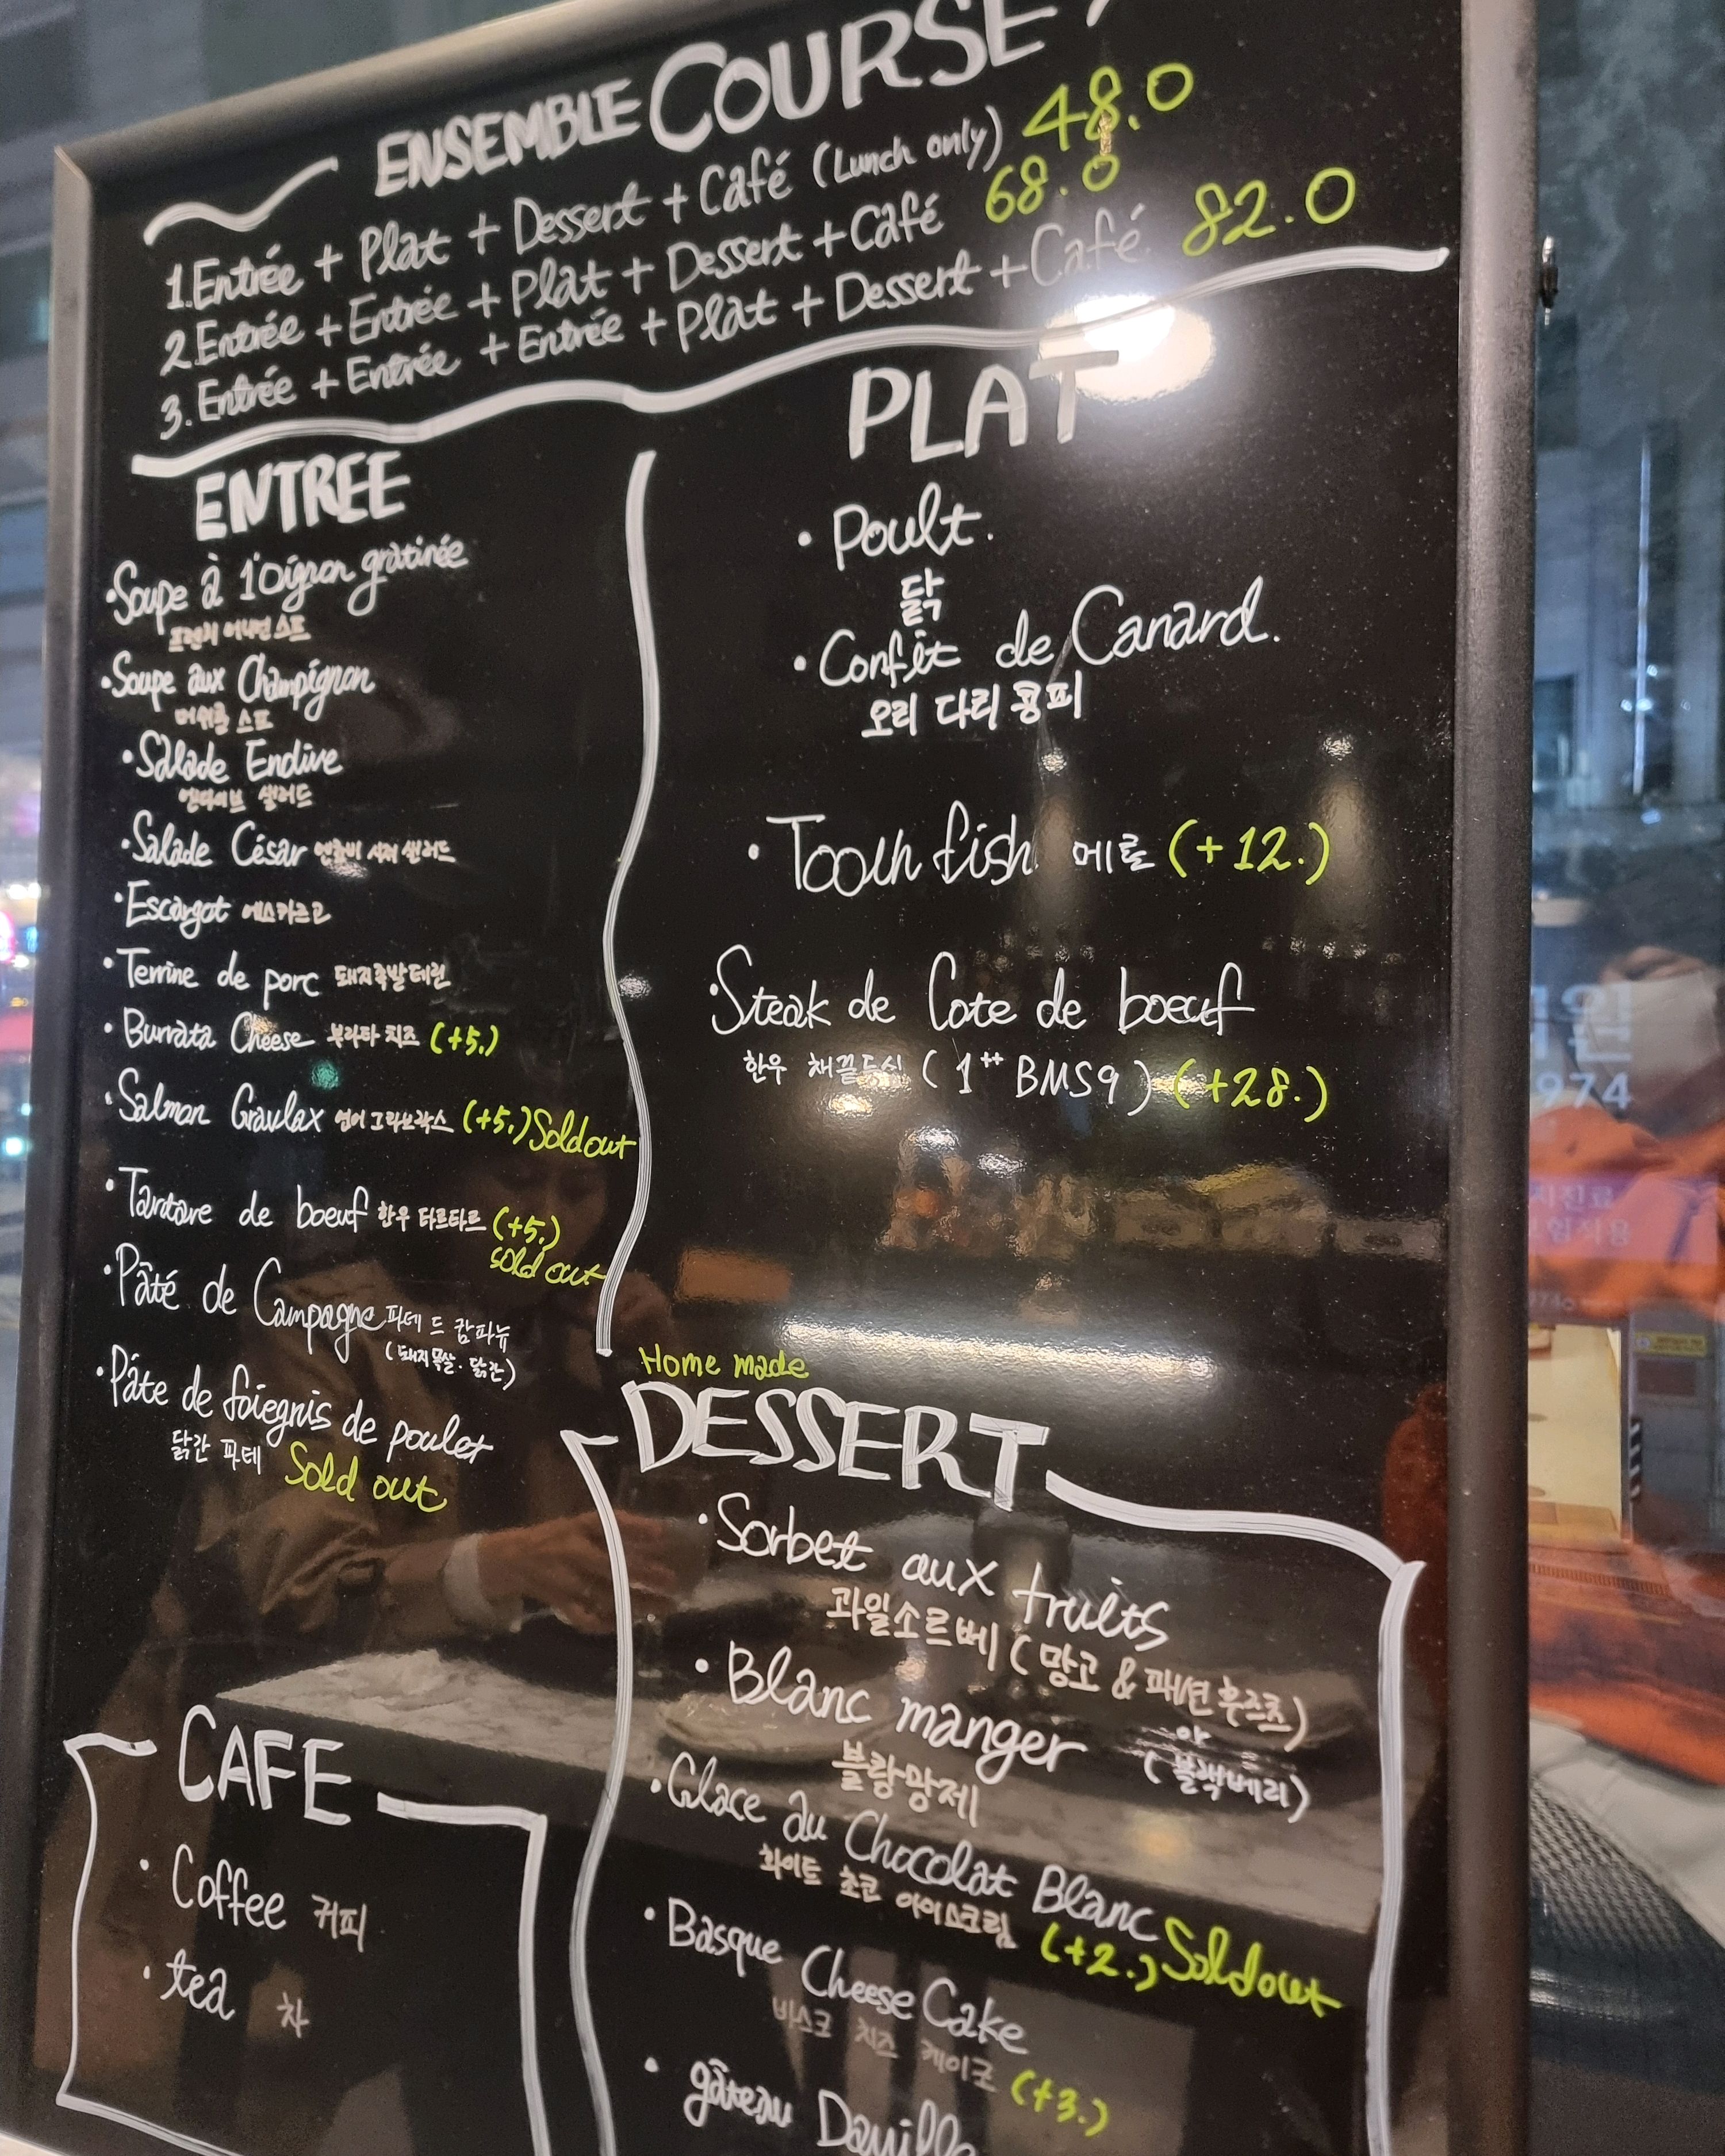 ENSEMBLE COURSE
1. Entrée + Plat + Dessert + Café (Lunch only) 48.0
2. Entrée + Entrée + Plat + Dessert + Café 68.0
3. Entrée + Entrée + Entrée + Plat + Dessert + Café 82.0
ENTREE
• Soupe à l'Oignon gratinée
프렌치 어니언 스프
• Soupe aux Champignon
머쉬룸 스프
• Salade Endive
엔다이브 샐러드
• Salade César 엔쵸비 시저 샐러드
• Escargot 에스카르고
• Terrine de porc 돼지족발테린
• Burrata Cheese 부라타 치즈 (+5.)
• Salmon Gravlax 연어 그라브락스 (+5.) Sold out
• Tartare de boeuf 한우 타르타르 (+5.)
sold out
• Pâté de Campagne 파테 드 캄파뉴
(돼지목살. 닭간)
• Pâte de foiegras de poulet
닭간 파테 Sold out
PLAT
• Poult.
닭
• Confit de Canard.
오리 다리 콩피
• Tooth fish 메로 (+12.)
• Steak de Cote de boeuf
한우 채끝등심 (1++ BMS9) (+28.)
Home made
DESSERT
• Sorbet aux fruits
과일소르베 (망고 & 패션후르츠)
or
(블랙베리)
• Blanc manger
블랑망제
• Glace au Chocolat Blanc
화이트 초코 아이스크림 (+2.) Sold out
• Basque Cheese Cake
바스크 치즈 케이크 (+3.)
• gâteau
CAFE
• Coffee 커피
• tea 차
974